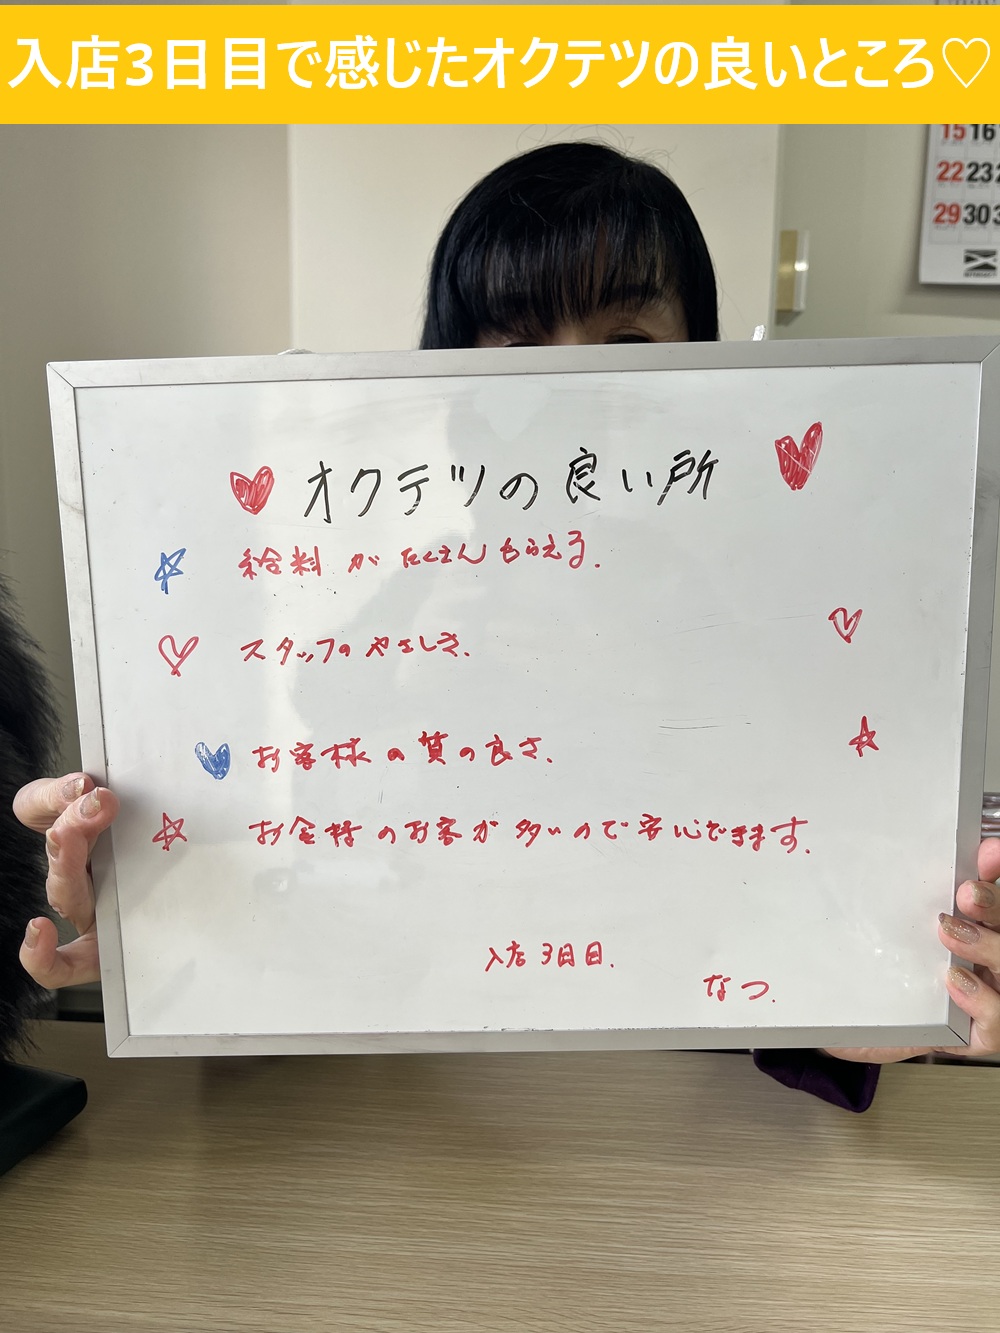 入店3日目で感じたオクテツの良いところ♡
15 16
22 23 2
29 30 3
オクテツの良い所
給料がたくさんもらえる.
スタッフのやさしさ.
お客様の質の良さ.
お金持のお客が多いので安心できます.
入店3日目.
なつ.